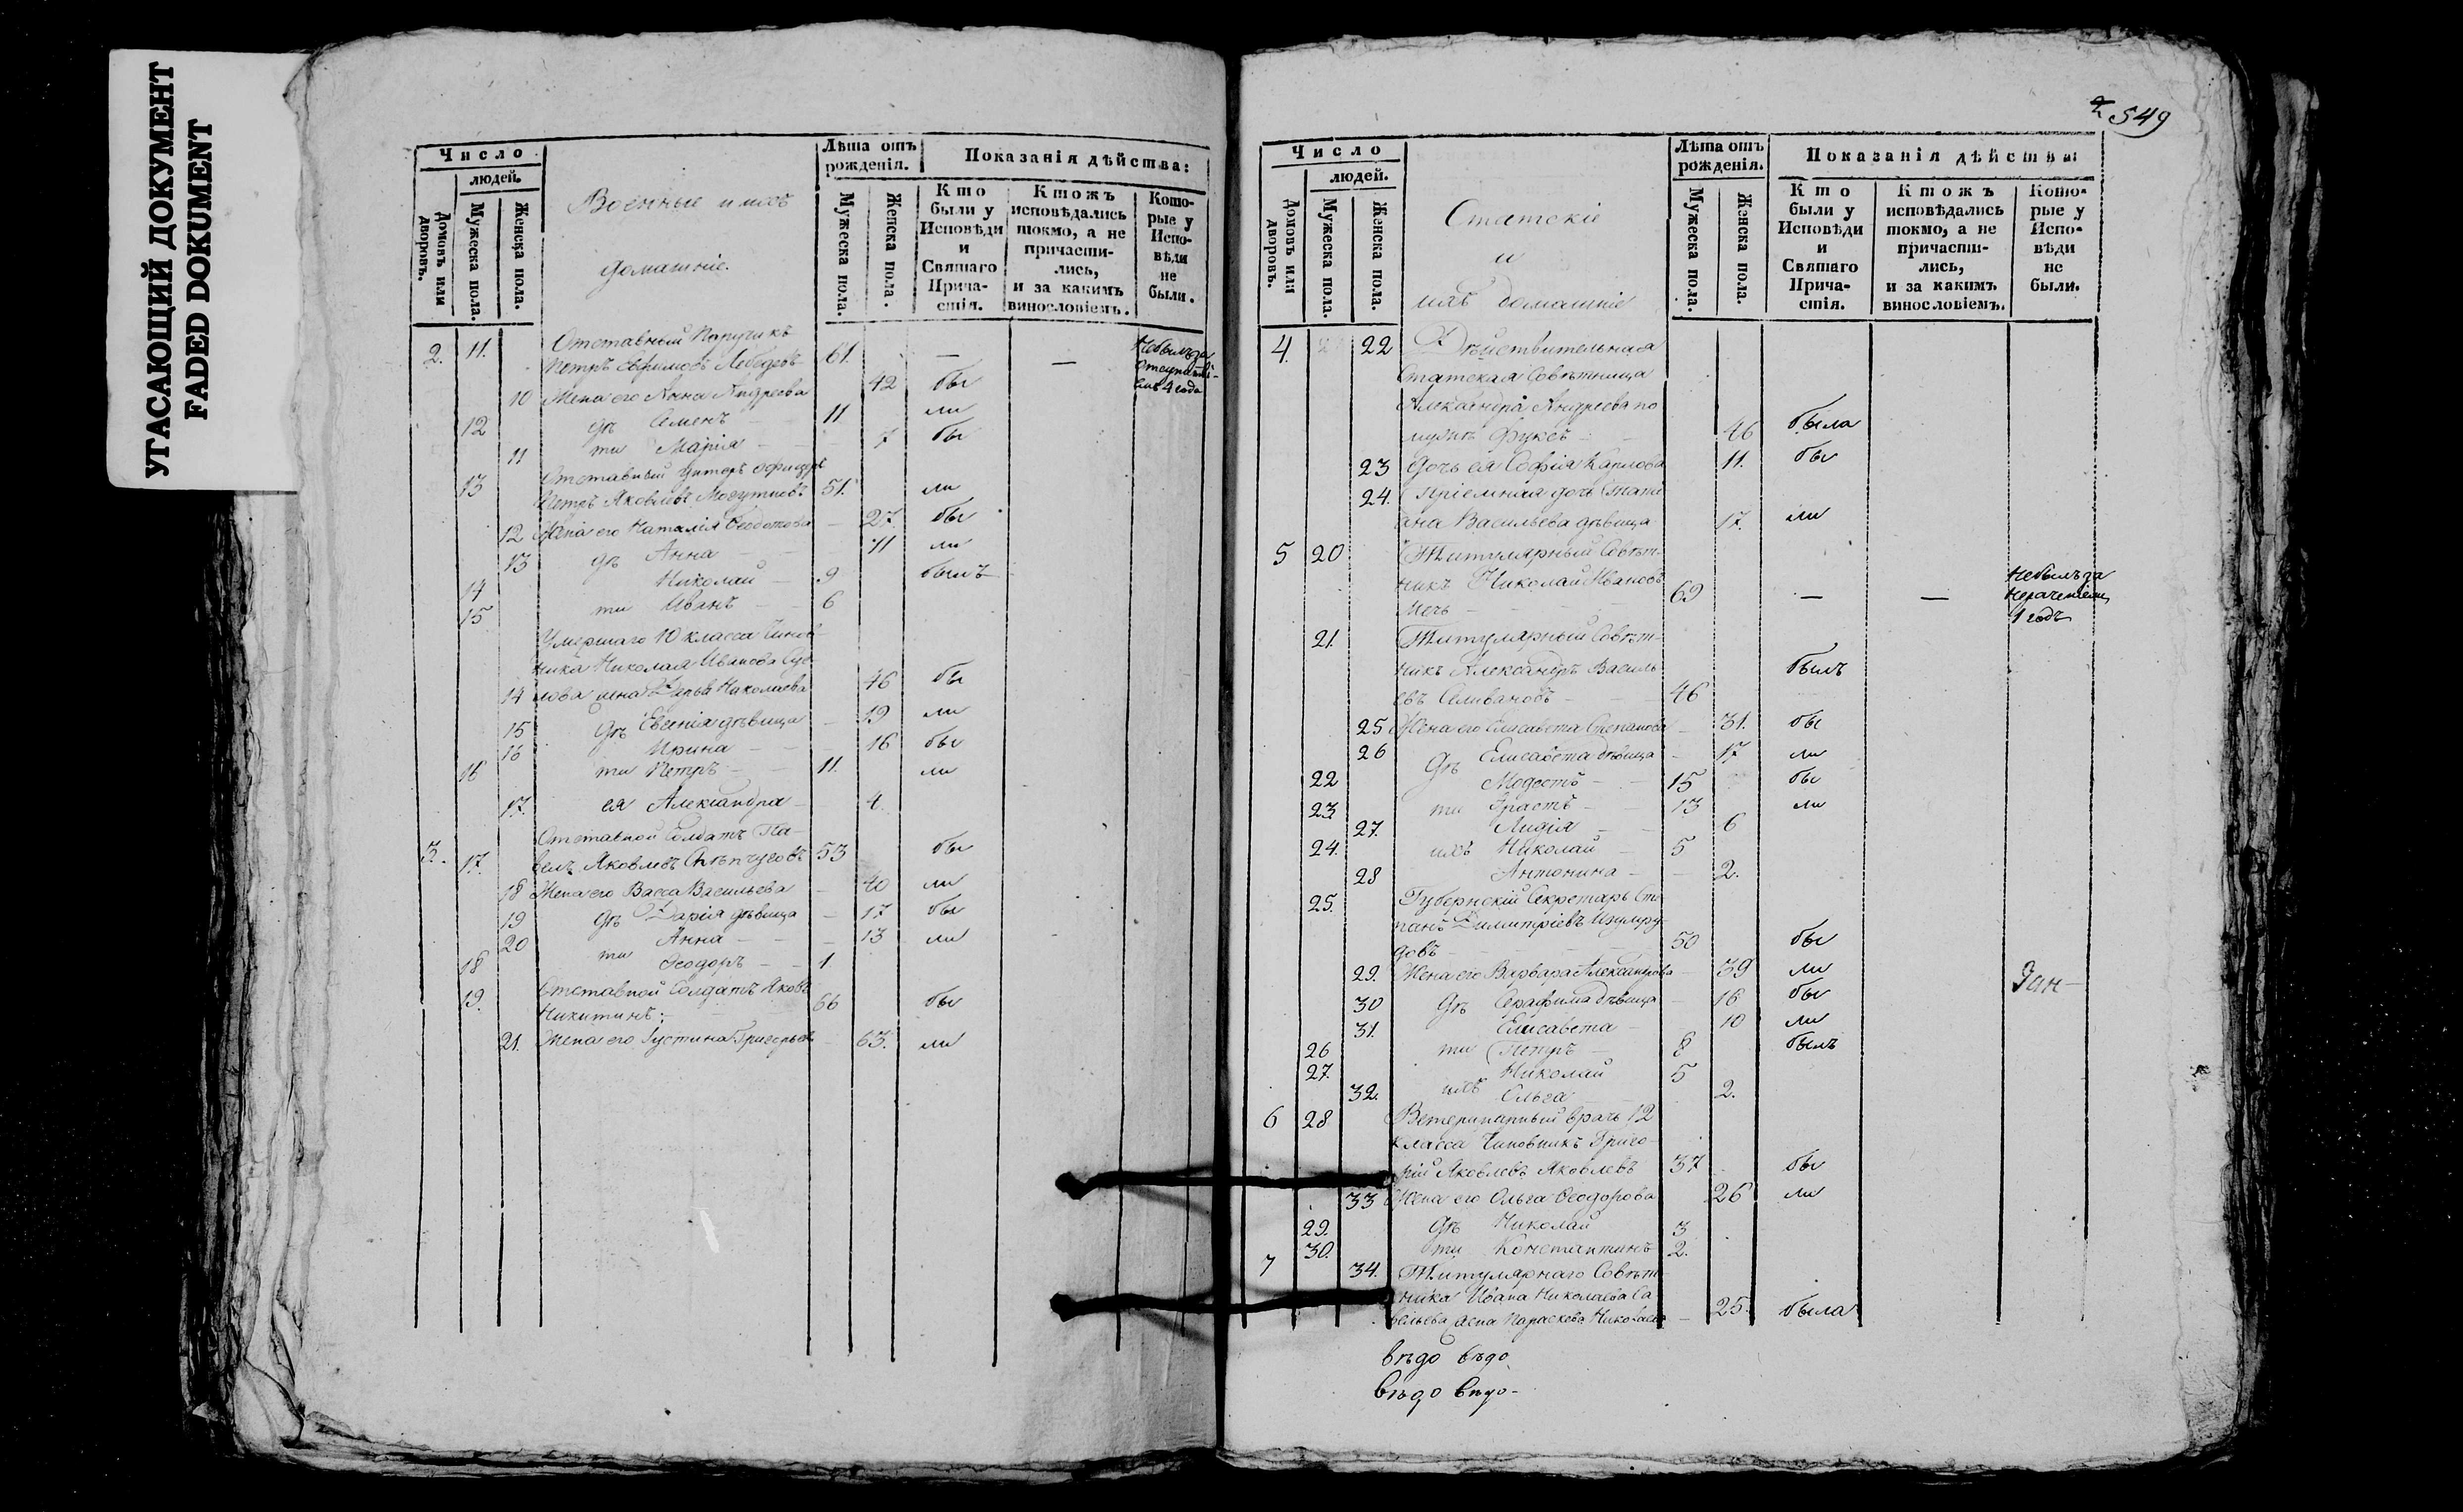 УГАСАЮЩИЙ ДОКУМЕНТ
FADED DOKUMENT
Число
людей.
Домовъ или дворовъ.
Мужеска пола.
Женска пола.
Военные и ихъ
домашніе.
Лѣта отъ рожденія.
Мужеска пола.
Женска пола.
Показанія дѣйства:
Кто были у Исповѣди и Святаго Прича-стія.
Ктожъ исповѣдались токмо, а не причасти-лись, и за какимъ винословіемъ.
Кото-рые у Испо-вѣди не были.
2. 11. Отставный Паручикъ
Петръ Ефимовъ Лебедевъ 61. — — Небылъ за
10 Жена его Анна Андреева 42 бы 4 года
12 дѣ Семенъ 11 ли
11 ти Марія 7 бы
13 Отставный Унтеръ Офицеръ
Петръ Яковлевъ 51. ли
12 Жена его Наталія Ѳеодотова 27. бы
13 дѣ Анна 11 ли
14 Николай 9 былъ
15 ти Иванъ 6
Умершаго 10 класса Чинов-
ника Николая Иванова
14 жена Дарья Николаева 46 бы
15 дѣ Евгенія дѣвица 19 ли
16 Ирина 16 бы
16 ти Петръ 11. ли
17. ея Александра 4.
3. 17. Отставной Солдатъ Па-
велъ Яковлевъ 53 бы
18 Жена его Васса Васильева 40 ли
19 дѣ Дарія дѣвица 17 бы
20 Анна 13 ли
18 ти Ѳеодоръ 1.
19. Отставной Солдатъ Яковъ
Никитинъ 66 бы
21. Жена его Іустина Григорьева 63. ли
549
Число
людей.
Домовъ или дворовъ.
Мужеска пола.
Женска пола.
Статскіе
и
ихъ домашніе
Лѣта отъ рожденія.
Мужеска пола.
Женска пола.
Показанія дѣйства
Кто были у Исповѣди и Святаго Прича-стія.
Ктожъ исповѣдались токмо, а не причасти-лись, и за какимъ винословіемъ.
Кото-рые у Испо-вѣди не были.
4. 22 Дѣйствительная
Статская Совѣтница
Александра Андреева по
мужѣ Фуксъ 46 была
23 Дочь ея Софія Карлова 11. бы
24. Пріемная дочь Тати
ана Васильева дѣвица 17. ли
5 20 Титулярный Совѣт-
никъ Николай Ивановъ
Мечь 69 — — Небылъ за нераченіемъ 1 годъ
21. Титулярный Совѣт-
никъ Александръ Василь-
евъ Селивановъ 46 былъ
25 Жена его Елисавета Степанова 31. бы
26 Дѣ Елисавета дѣвица 17 ли
22 Модестъ 15 бы
23 ти Ерастъ 13 ли
27. Лидія 6
24. ихъ Николай 5
28 Антонина 2.
25. Губернскій Секретарь Сте
панъ Димитріевъ Изумру-
довъ 50 бы
29. Жена его Варвара Александрова 39 ли
30 Дѣ Серафима дѣвица 16 бы
31. Елисавета 10 ли
26 ти Петръ 8 былъ
27. Николай 5
32. ихъ Ольга 2.
6 28 Ветеринарный врачь 12
класса Чиновникъ Григо-
рій Яковлевъ Яковлевъ 37 бы
33 Жена его Ольга Ѳеодорова 26 ли
29. Дѣ Николай 3
30. ти Константинъ 2.
7 34. Титулярнаго Совѣт-
ника Ивана Николаева Са
вельева жена Параскева Николаева 25. была
вѣдо вѣдо
вѣдо вѣдо-